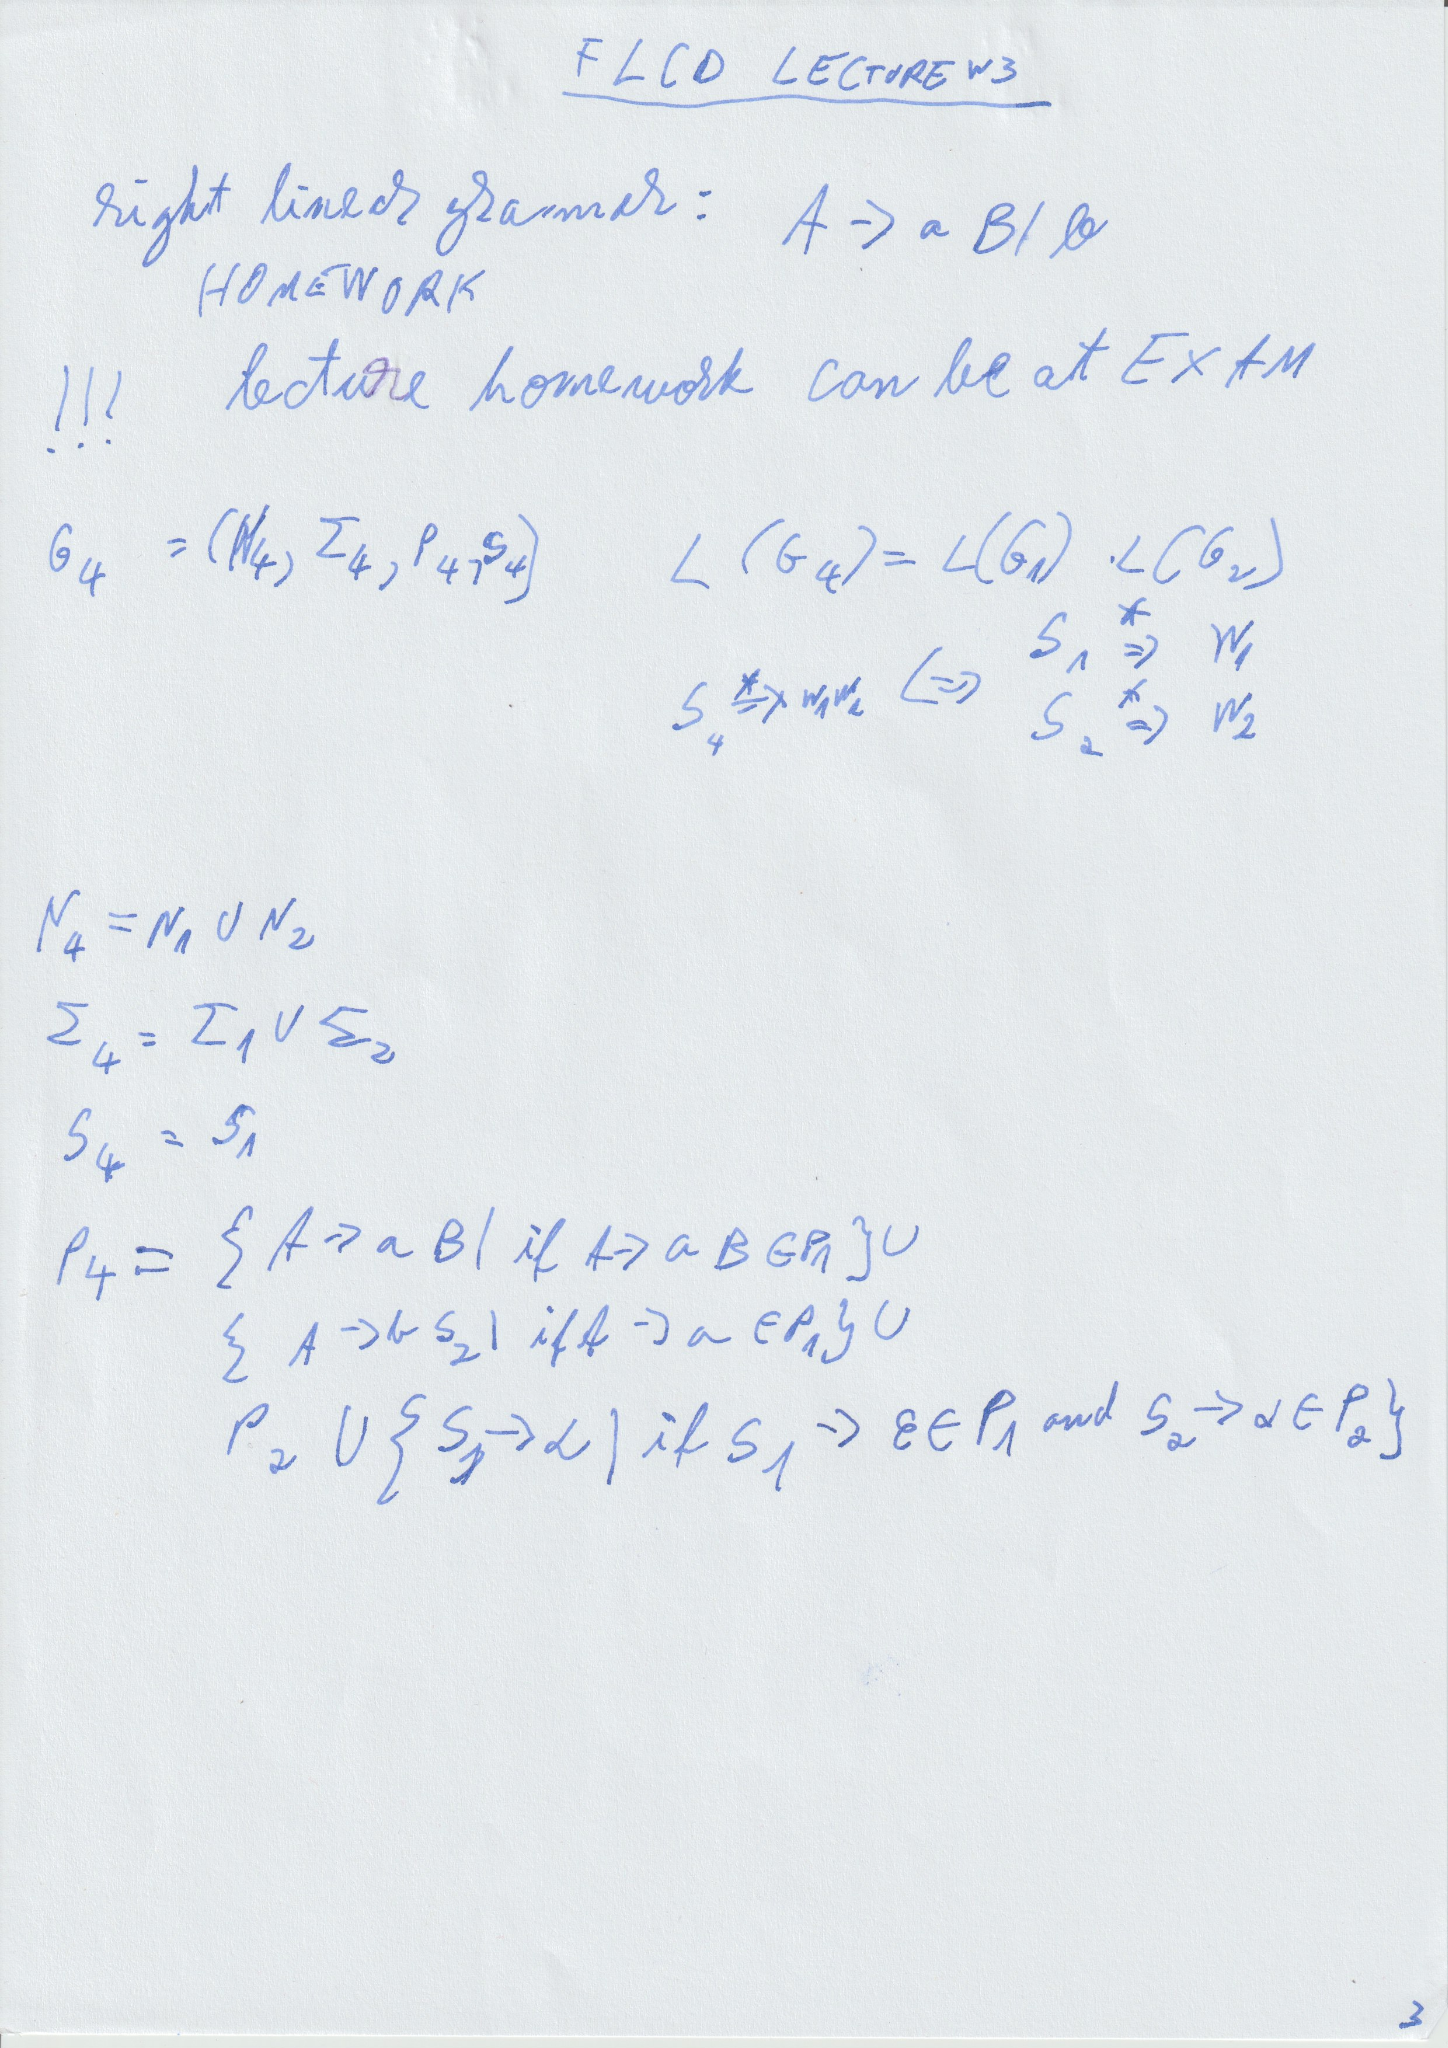 FLCD LECTURE W3
right linear grammar: A -> a B | b
HOMEWORK
!!! lecture homework can be at EXAM
G₄ = (N₄, Σ₄, P₄, S₄) L(G₄) = L(G₁) . L(G₂)
S₁ *=> W₁
S₄ *=> W₁W₂ <=>
S₂ *=> W₂
N₄ = N₁ ∪ N₂
Σ₄ = Σ₁ ∪ Σ₂
S₄ = S₁
P₄ = { A -> a B | if A -> a B ∈ P₁ } ∪
{ A -> b S₂ | if A -> a ∈ P₁ } ∪
P₂ ∪ { S₁ -> α | if S₁ -> ε ∈ P₁ and S₂ -> α ∈ P₂ }
3